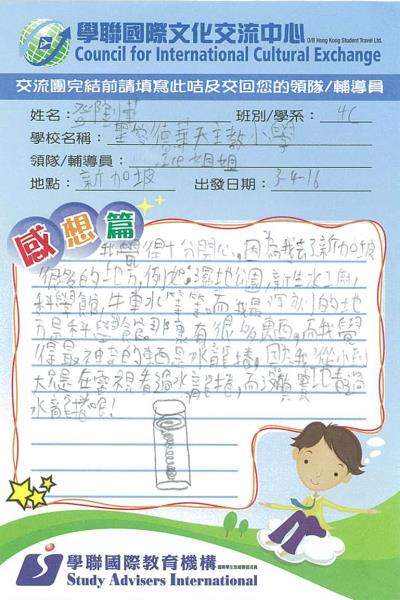 學聯國際文化交流中心 O/B Hong Kong Student Travel Ltd.
Council for International Cultural Exchange
交流團完結前請填寫此咭及交回您的領隊/輔導員
姓名： 班別/學系： 4C
學校名稱： 聖愛德華天主教小學
領隊/輔導員： 姐姐
地點： 新加坡 出發日期： 3-4-16
感想篇
我覺得十分開心，因為我去了新加坡
很多的地方，例如：濕地公園、新生水工廠、
科學館、牛車水等等。而我最深刻的地
方是科學館，那裏有很多東西，而我覺
得最神奇的東西是水龍捲，因為我從小到
大只是在電視看過水龍捲，而沒有實地看過
水龍捲呢！
學聯國際教育機構
Study Advisers International